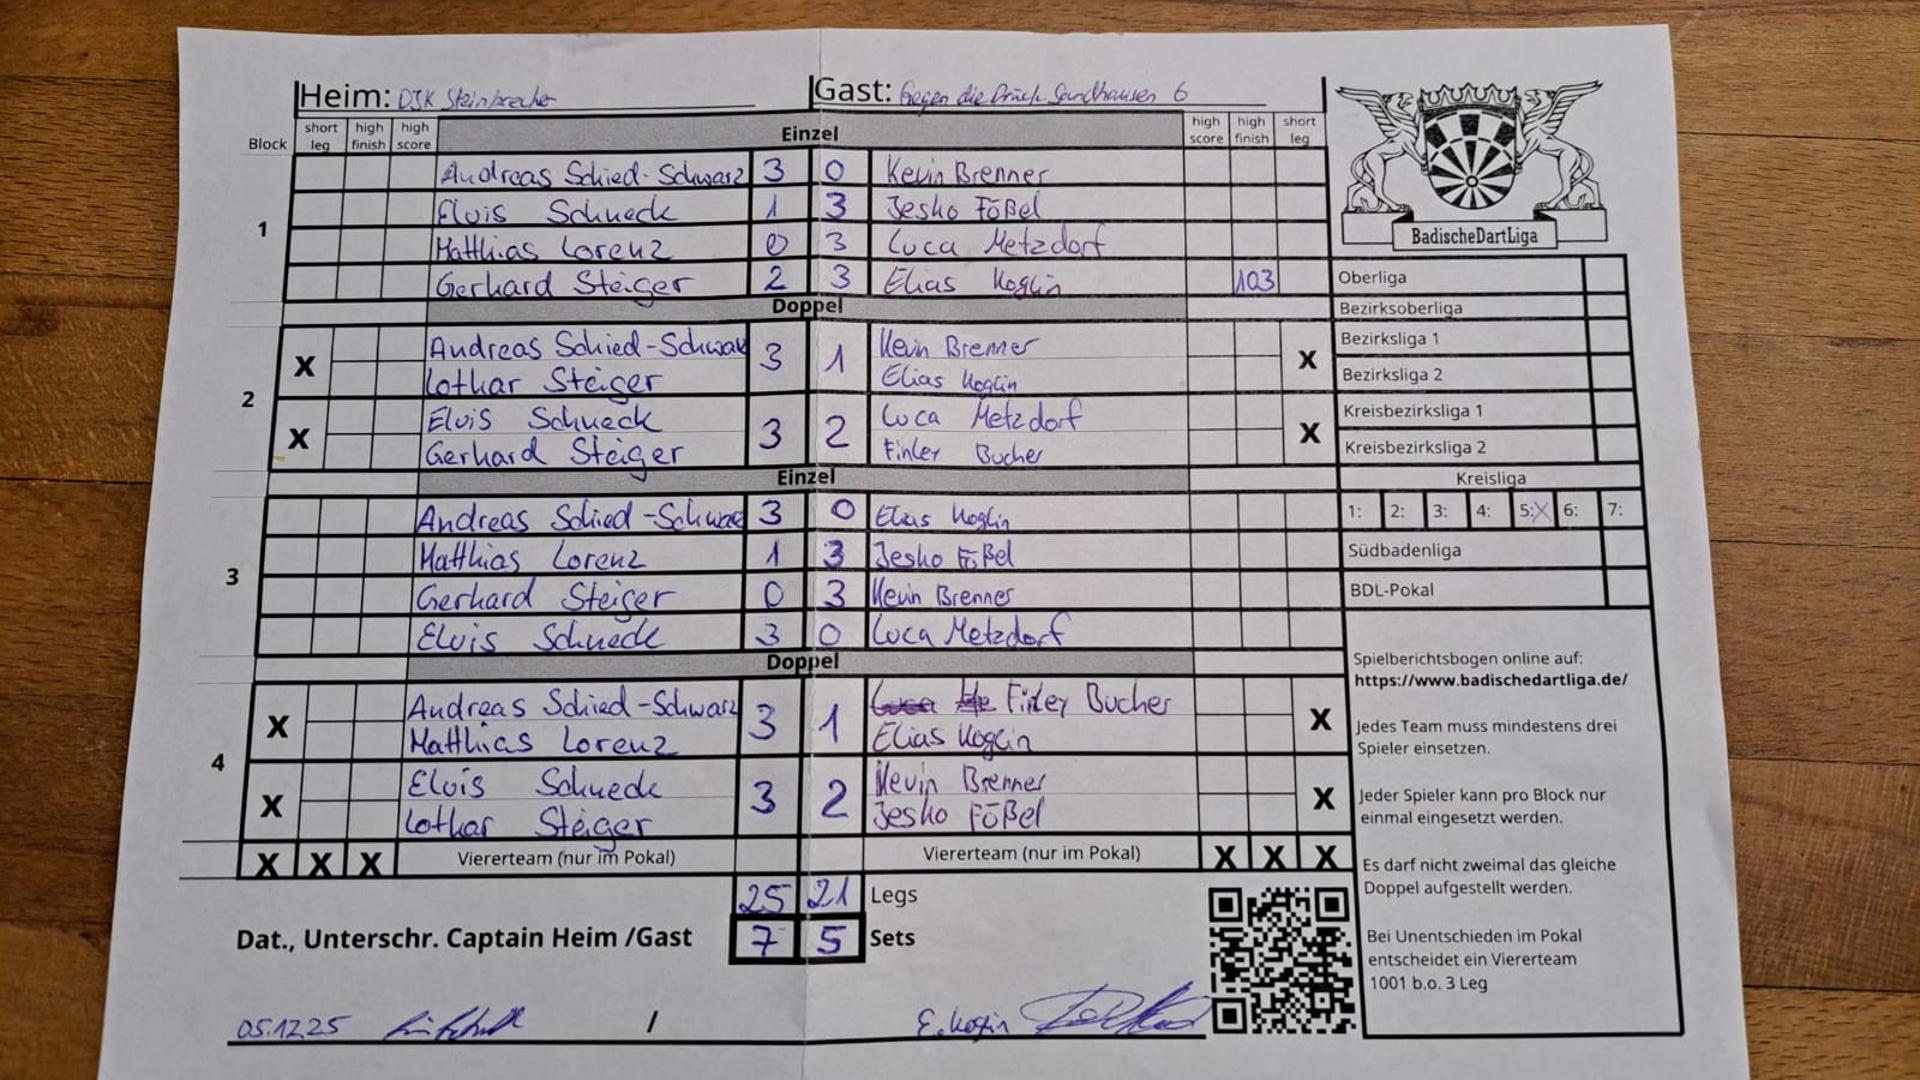 Heim: DJK Steinbrecher Gast: Gegen die Drück Sandhausen 6
Block short leg high finish high score Einzel high score high finish short leg
1
Andreas Schied-Schwarz 3 0 Kevin Brenner
Elvis Schneck 1 3 Jesko Fößel
Matthias Lorenz 0 3 Luca Metzdorf
Gerhard Steiger 2 3 Elias Koglin 103
Doppel
2
X Andreas Schied-Schwarz 3 1 Kevin Brenner X
Lothar Steiger Elias Koglin
X Elvis Schneck 3 2 Luca Metzdorf X
Gerhard Steiger Finley Bucher
Einzel
3
Andreas Schied-Schwarz 3 0 Elias Koglin
Matthias Lorenz 1 3 Jesko Fößel
Gerhard Steiger 0 3 Kevin Brenner
Elvis Schneck 3 0 Luca Metzdorf
Doppel
4
X Andreas Schied-Schwarz 3 1 Finley Bucher X
Matthias Lorenz Elias Koglin
X Elvis Schneck 3 2 Kevin Brenner X
Lothar Steiger Jesko Fößel
X X X Viererteam (nur im Pokal) Viererteam (nur im Pokal) X X X
25 21 Legs
Dat., Unterschr. Captain Heim /Gast 7 5 Sets
05.12.25 / E. Koglin
BadischeDartLiga
Oberliga
Bezirksoberliga
Bezirksliga 1
Bezirksliga 2
Kreisbezirksliga 1
Kreisbezirksliga 2
Kreisliga
1: 2: 3: 4: 5:X 6: 7:
Südbadenliga
BDL-Pokal
Spielberichtsbogen online auf:
https://www.badischedartliga.de/
Jedes Team muss mindestens drei
Spieler einsetzen.
Jeder Spieler kann pro Block nur
einmal eingesetzt werden.
Es darf nicht zweimal das gleiche
Doppel aufgestellt werden.
Bei Unentschieden im Pokal
entscheidet ein Viererteam
1001 b.o. 3 Leg